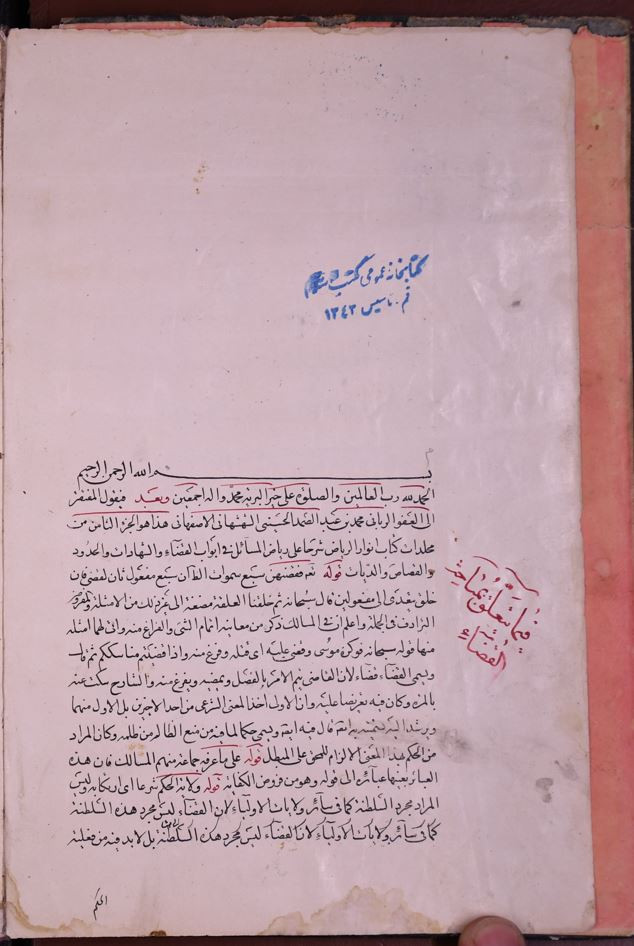 کتابخانه عمومی
قم. تاسیس ۱۳٤۳
بسم الله الرحمن الرحیم
الحمد لله رب العالمین والصلوة علی خیر البریة محمد واله اجمعین وبعد فیقول المفتقر
الی العفو الربانی محمد بن عبد الصمد الحسینی الشهشهانی الاصفهانی هذا هو الجزء الثامن من
مجلدات کتاب انوار الریاض شرحا علی ریاض المسائل فی ابواب القضاء والشهادات والحدود
والقصاص والدیات قوله تعالی فقضیهن سبع سموات الظاهر ان سبع مفعول ثان لقضی فان
خلق یتعدی الی مفعولین قال سبحانه ثم خلقنا النطفة الی غیر ذلک من الامثلة
الترادف فی الجملة واعلم ان فی المسالک ذکر من معانیه اتمام الشی والفراغ منه وان لهما امثلة
منها قوله سبحانه فوکزه موسی وقضی علیه ای قتله وفرغ منه واذا قضیتم مناسککم ثم قال
ویسمی القضاء قضاء لان القاضی یتم الامر بالفصل ویمضیه ویفرغ منه والشارح سکت عنه
بالمرة وکان فیه تعریضا علیه وان الاولی اخذ المعنی الشرعی من احد الاخیرین بل الاول منهما
ویرشد الیه قال فیه ایضا ویسمی حکما لما فیه من منع الظالم من ظلمه وکان المراد
من الحکم بهذا المعنی الالزام للحق علی المبطل قوله علی ما عرفه جماعة منهم المسالک فان هذه
العبارة بعینها عبارته الی قوله وهو من فروض الکفایة قوله ولایة الحکم شرعا ای ولیس
المراد مجرد السلطنة کما فی سائر ولایات الاولیاء لان القضاء لیس مجرد هذه السلطنة
کما فی سائر ولایات الاولیاء لان القضاء لیس مجرد هذه السلطنة بل لا بد فیه من فعلیة
الحکم
فیما یتعلق بمباحث
القضاء